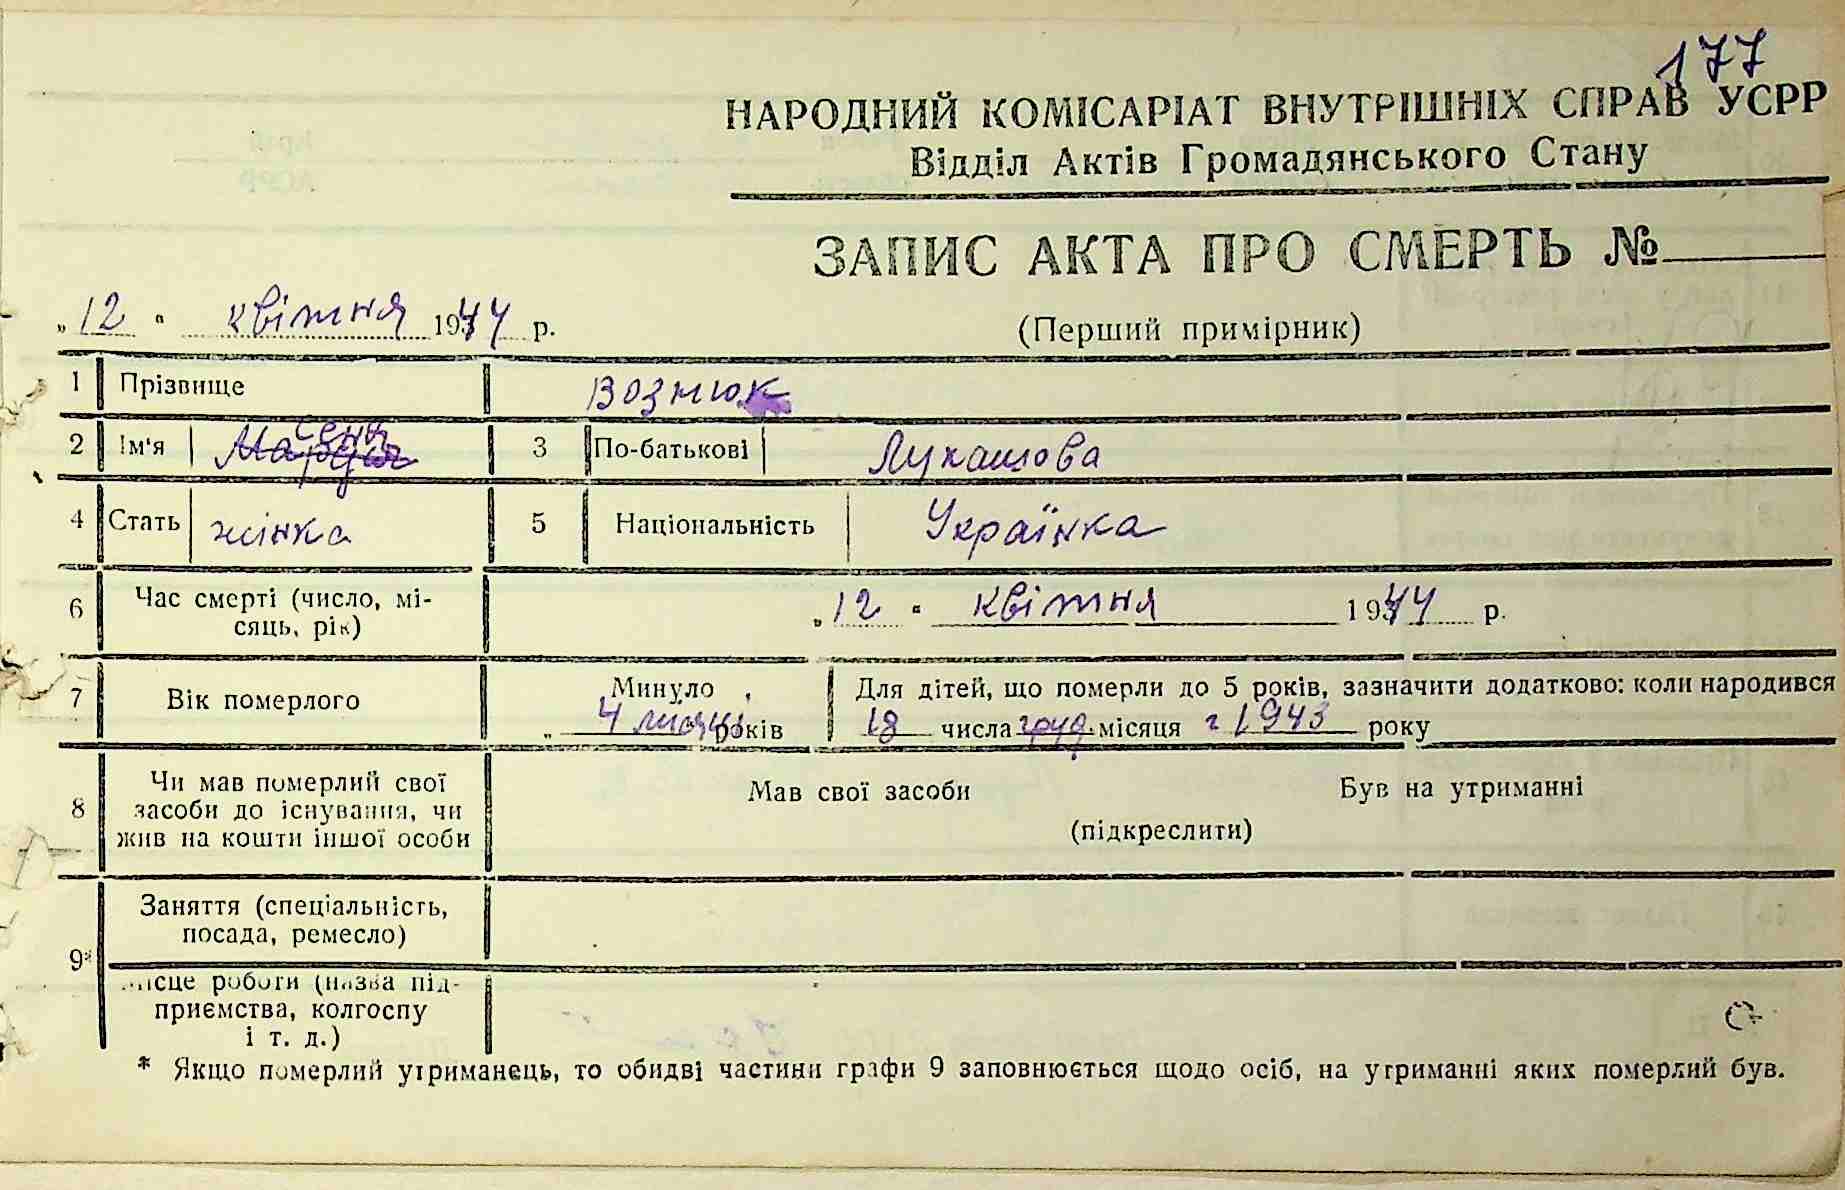 177
НАРОДНИЙ КОМІСАРІАТ ВНУТРІШНІХ СПРАВ УСРР
Відділ Актів Громадянського Стану
ЗАПИС АКТА ПРО СМЕРТЬ №
„12" квітня 1944 р.
(Перший примірник)
1 Прізвище Вознюк
2 Ім'я 3 По-батькові Лукашова
4 Стать жінка 5 Національність Українка
6 Час смерті (число, мі-
сяць, рік)
„12" квітня 1944 р.
7 Вік померлого
Минуло
„4 місяці років
Для дітей, що померли до 5 років, зазначити додатково: коли народився
18 числа груд. місяця 1943 року
8 Чи мав померлий свої
засоби до існування, чи
жив на кошти іншої особи
Мав свої засоби Був на утриманні
(підкреслити)
9* Заняття (спеціальність,
посада, ремесло)
місце роботи (назва під-
приємства, колгоспу
і т. д.)
* Якщо померлий утриманець, то обидві частини графи 9 заповнюється щодо осіб, на утриманні яких померлий був.